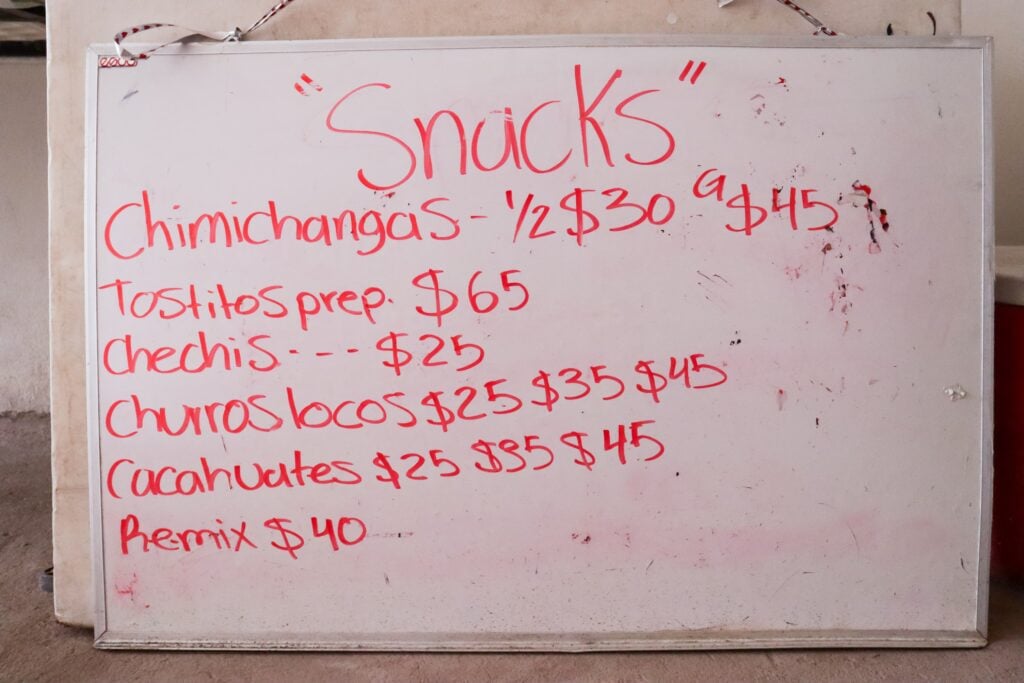 "Snacks"
Chimichangas - 1/2 $30 G $45
Tostitos prep. $65
Chechis - - - $25
Churros locos $25 $35 $45
Cacahuates $25 $35 $45
Remix $40